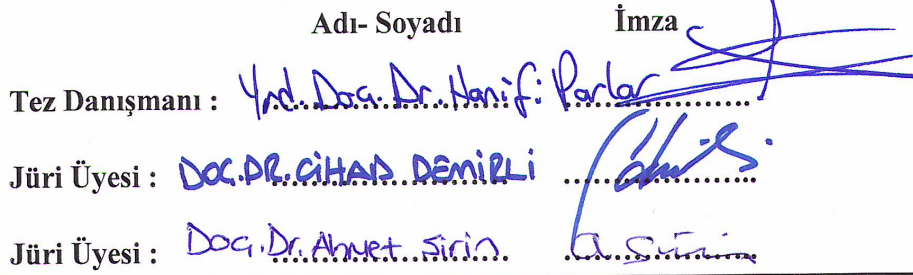 Adı- Soyadı İmza
Tez Danışmanı : Yrd. Doç. Dr. Hanifi Parlar
Jüri Üyesi : DOÇ.DR. CİHAD DEMİRLİ
Jüri Üyesi : Doç. Dr. Ahmet Şirin A. Şirin